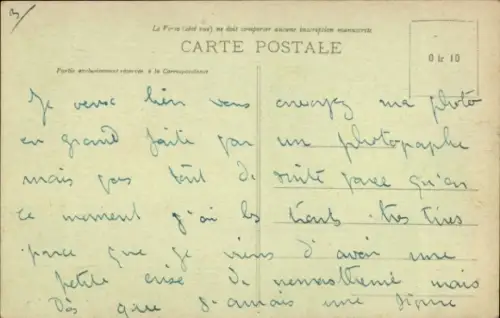 Le Verso (côté vue) ne doit comporter aucune inscription manuscrite
CARTE POSTALE
0 le 10
Partie exclusivement réservée à la Correspondance
Je veux bien vous envoyez ma photo
en grand faite par un photographe
mais pas tout de suite parce qu'en
ce moment j'ai les traits très tirés
parce que je viens d'avoir une
petite crise de mais
Dès que j'aurais une